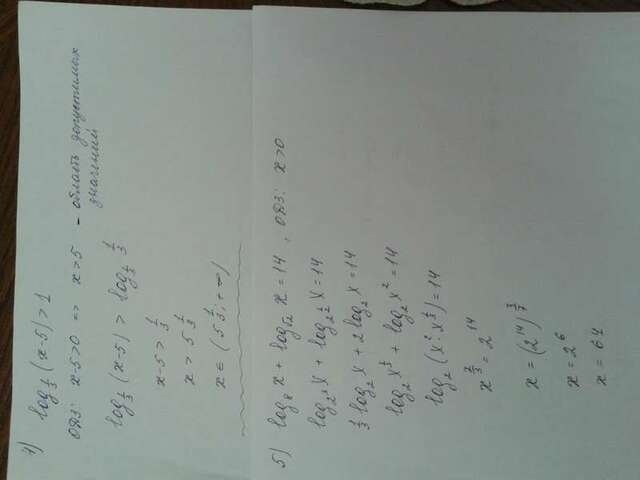 4) log_{1/3} (x-5) > 1
ОДЗ: x-5>0 => x>5 - область допустимых
значений
log_{1/3} (x-5) > log_{1/3} 1/3
x-5 > 1/3
x > 5 1/3
x ∈ (5 1/3; +∞)
5) log_8 x + log_{√2} x = 14, ОДЗ: x>0
log_{2^3} x + log_{2^{1/2}} x = 14
1/3 log_2 x + 2 log_2 x = 14
log_2 x^{1/3} + log_2 x^2 = 14
log_2 (x^2 · x^{1/3}) = 14
x^{7/3} = 2^{14}
x = (2^{14})^{3/7}
x = 2^6
x = 64